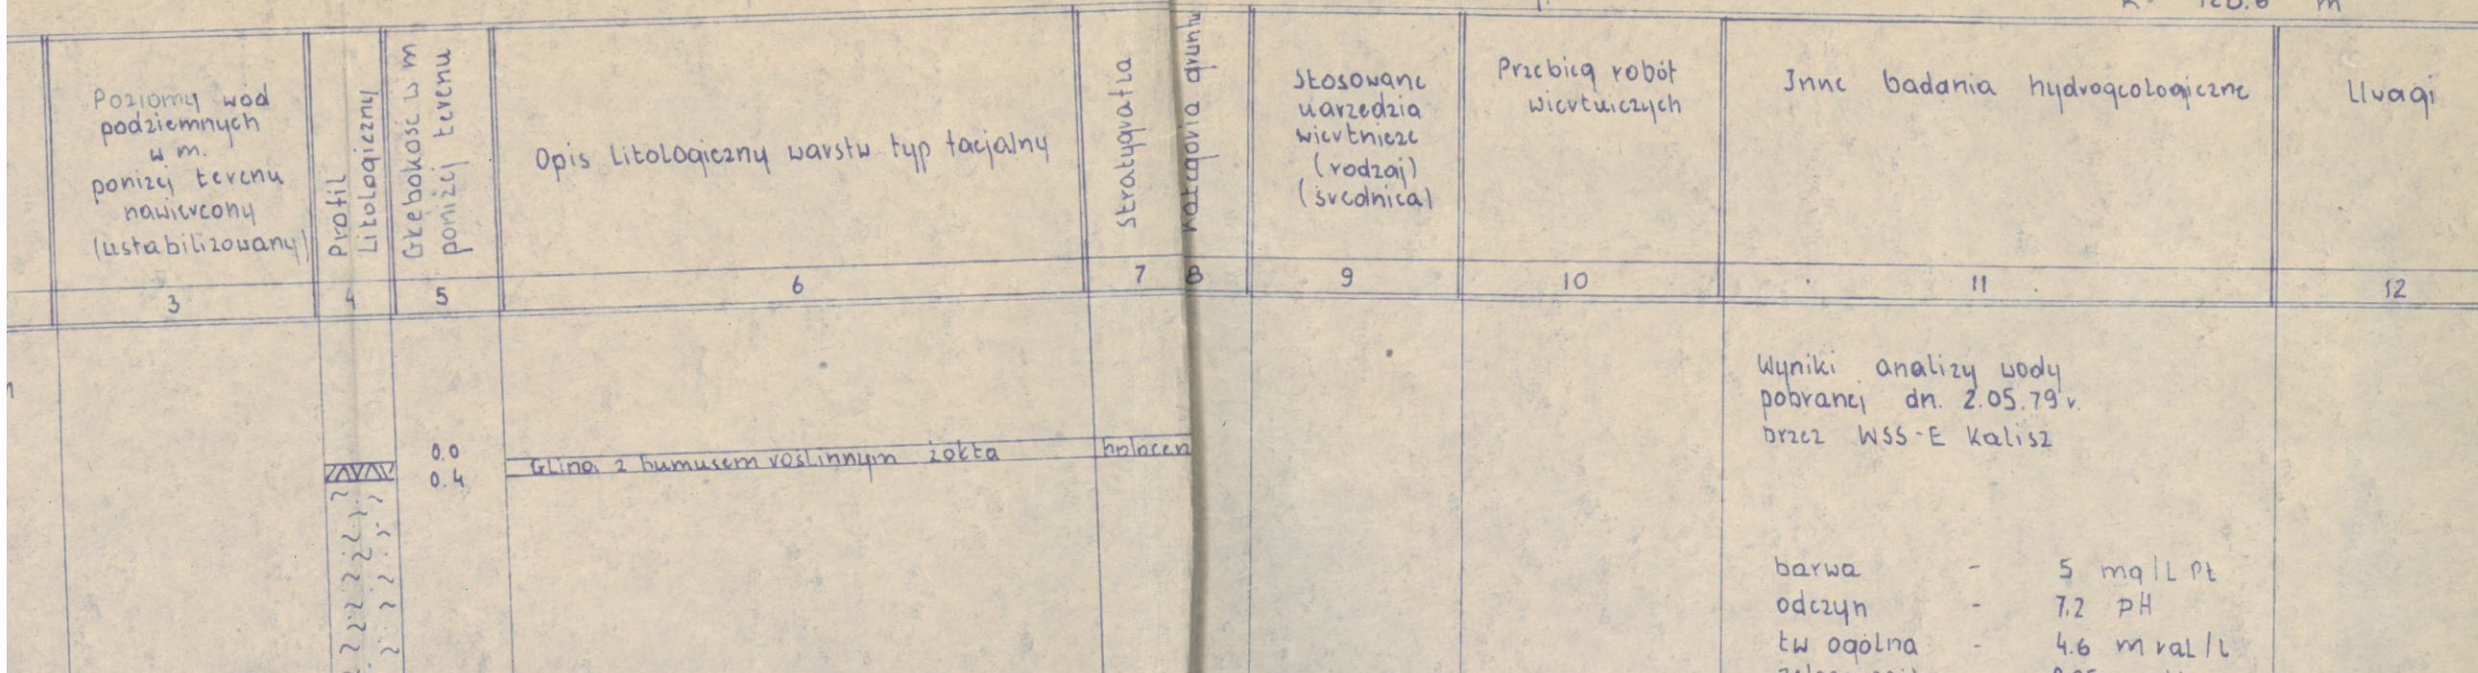 120.6 m
Poziomy wód
podziemnych
w m.
poniżej terenu
nawiercony
(ustabilizowany)
Profil
Litologiczny
Głębokość w m
poniżej terenu
Opis litologiczny warstw typ facjalny
Stratygrafia
Kategoria gruntu
Stosowane
narzędzia
wiertnicze
(rodzaj)
(średnica)
Przebieg robót
wiertniczych
Inne badania hydrogeologiczne
Uwagi
3
4
5
6
7
8
9
10
11
12
Wyniki analizy wody
pobranej dn. 2.05.79 r.
przez WSS-E Kalisz
0.0
Glina z humusem roślinnym żółta
holocen
0.4
barwa - 5 mg/l Pt
odczyn - 7.2 pH
tw ogólna - 4.6 m val/l